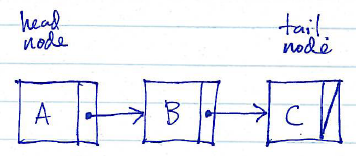 head
node
tail
node
A
B
C